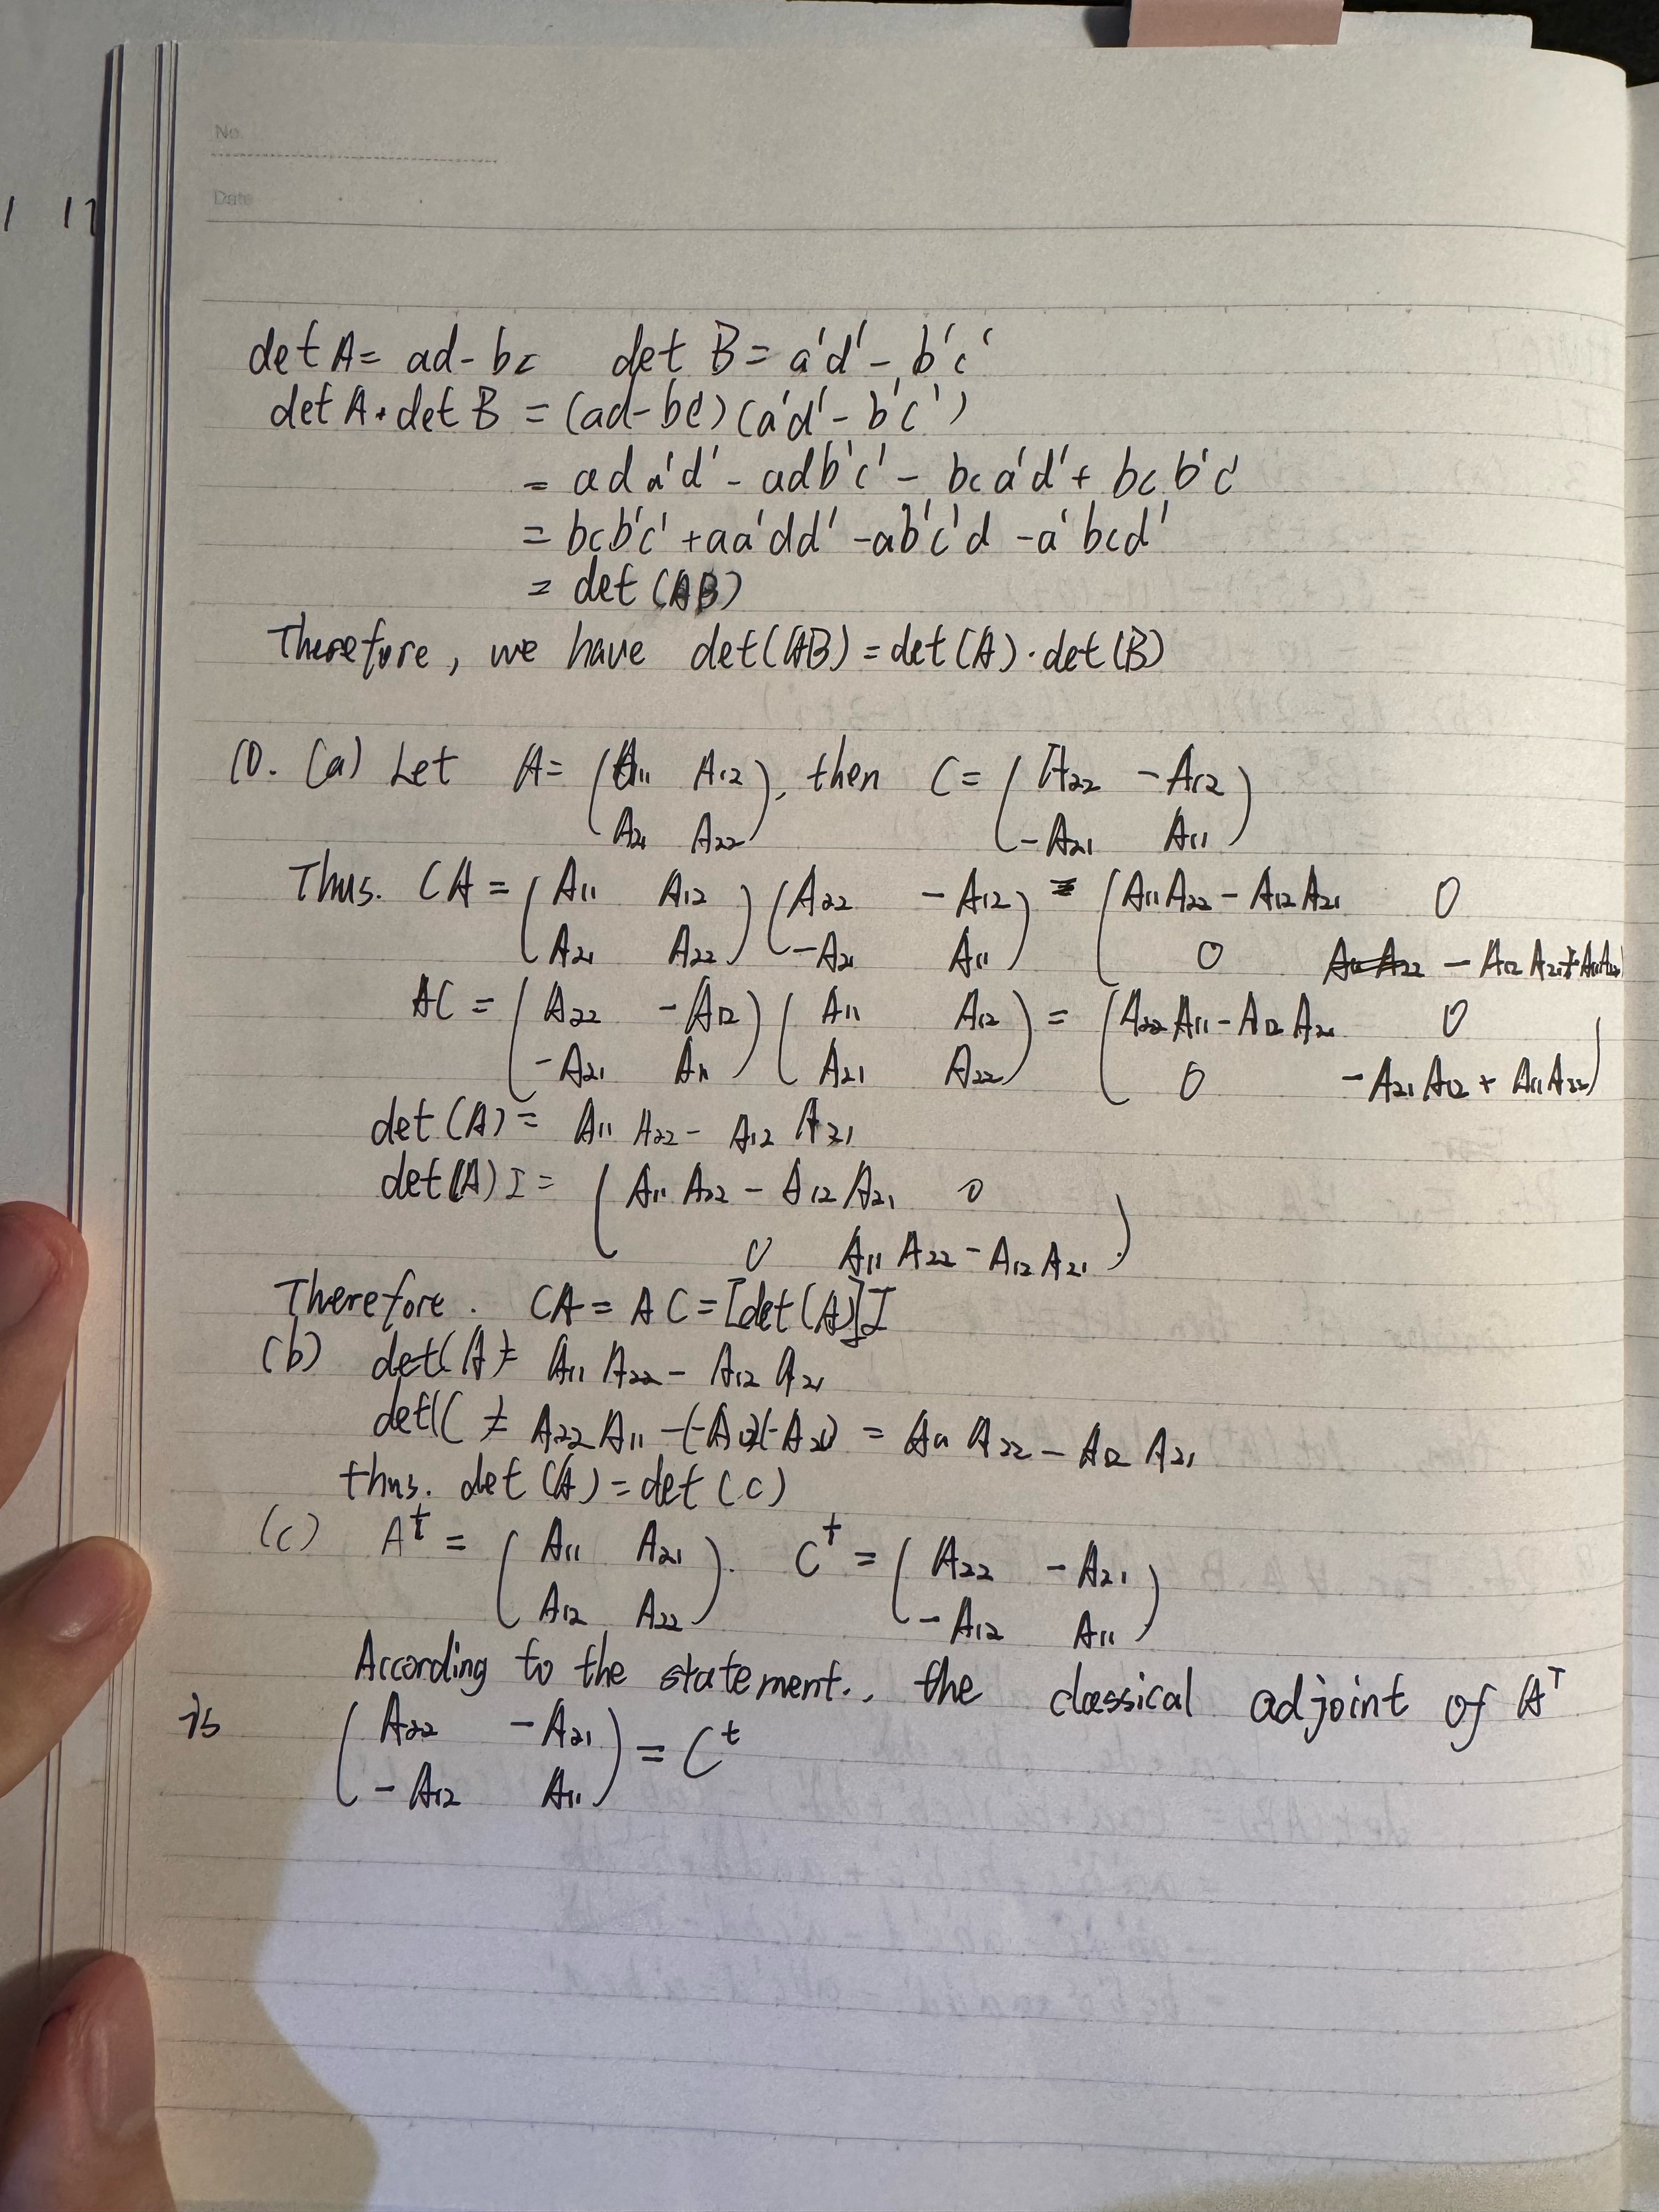 1 17
No.
Date
det A = ad - bc    det B = a'd' - b'c'
det A · det B = (ad - bc) (a'd' - b'c')
= ad a'd' - adb'c' - bc a'd' + bc b'c'
= bcb'c' + aa'dd' - ab'c'd - a'bcd'
= det (AB)
Therefore, we have det(AB) = det(A) · det(B)
10. (a) Let A = ( A11 A12 ), then C = ( A22 -A12 )
( A21 A22 ) ( -A21 A11 )
Thus. CA = ( A11 A12 ) ( A22 -A12 ) = ( A11A22 - A12A21 0
( A21 A22 ) ( -A21 A11 ) ( 0 - A12A21 + A11A22 )
AC = ( A22 -A12 ) ( A11 A12 ) = ( A22A11 - A12A21 0 )
( -A21 A11 ) ( A21 A22 ) ( 0 -A21A12 + A11A22 )
det (A) = A11 A22 - A12 A21
det(A) I = ( A11 A22 - A12 A21 0 )
( 0 A11 A22 - A12 A21 )
Therefore. CA = AC = [det(A)]I
(b) det(A) = A11 A22 - A12 A21
det(C) = A22 A11 - (-A12)(-A21) = A11 A22 - A12 A21
thus. det (A) = det (C)
(c) A^t = ( A11 A21 ). C^t = ( A22 -A21 )
( A12 A22 ) ( -A12 A11 )
According to the statement., the classical adjoint of A^T
is ( A22 -A21 ) = C^t
( -A12 A11 )